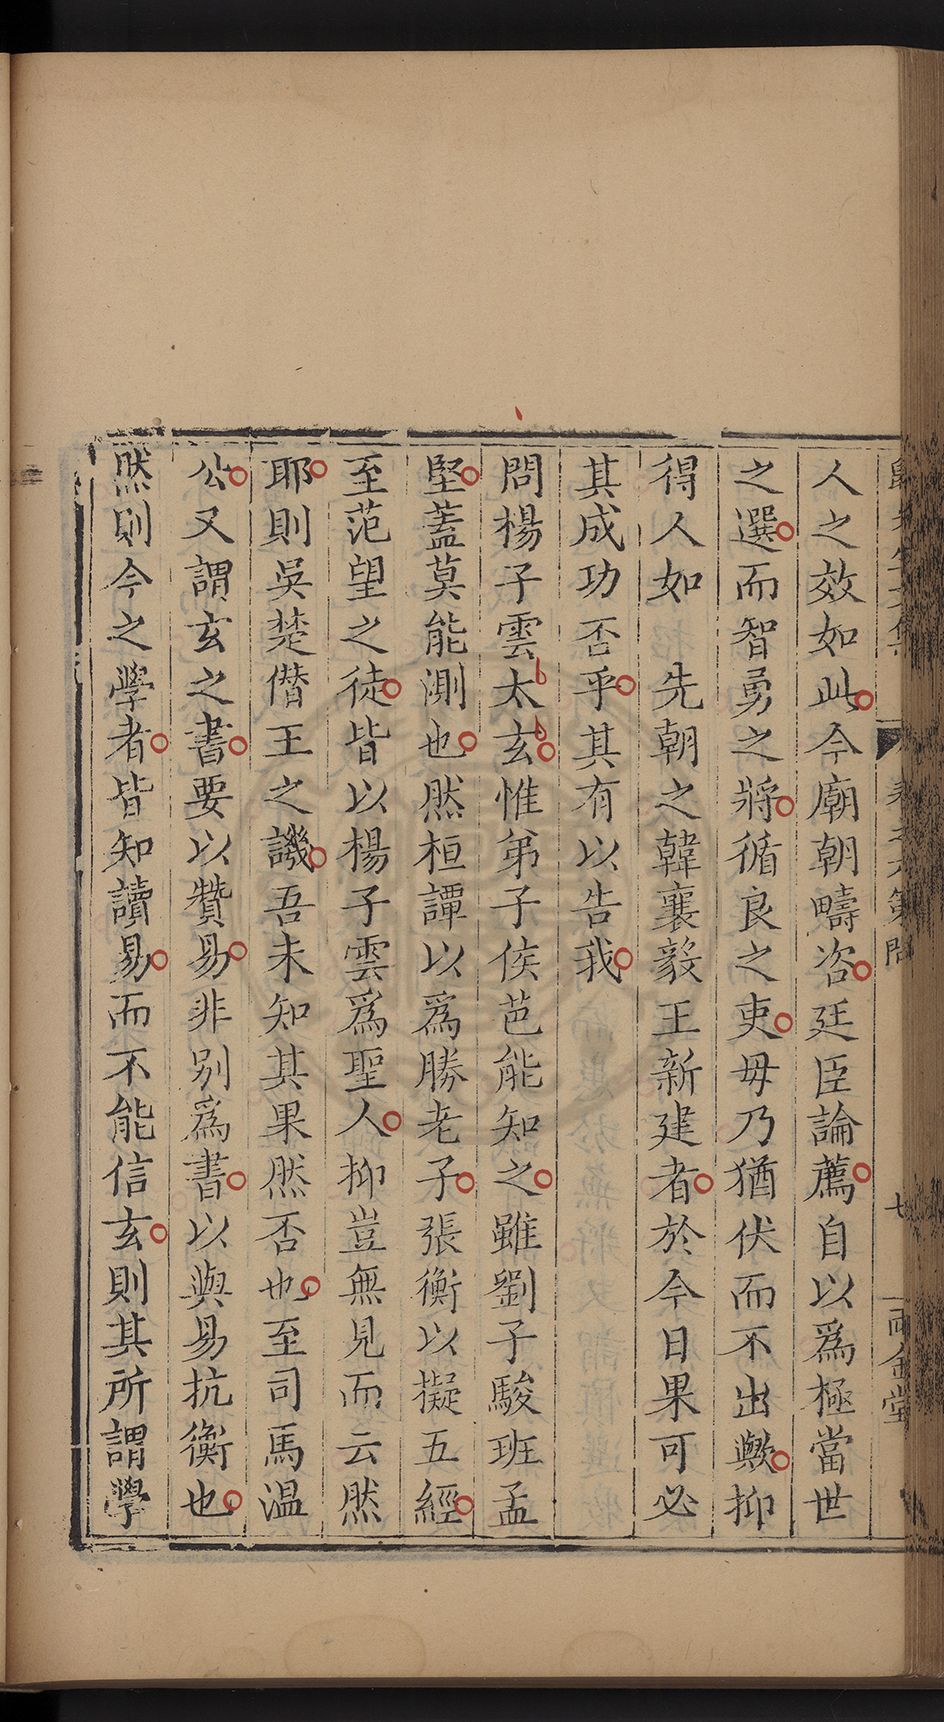 人之效如此今廟朝疇咨廷臣論薦自以爲極當世
之選而智勇之將循良之吏毋乃猶伏而不出歟抑
得人如　先朝之韓襄毅王新建者於今日果可必
其成功否乎其有以告我
問楊子雲太玄惟弟子侯芭能知之雖劉子駿班孟
堅蓋莫能測也然桓譚以爲勝老子張衡以擬五經
至范望之徒皆以楊子雲爲聖人抑豈無見而云然
耶則吳楚僭王之譏吾未知其果然否也至司馬溫
公又謂玄之書要以贊易非別爲書以與易抗衡也
然則今之學者皆知讀易而不能信玄則其所謂學